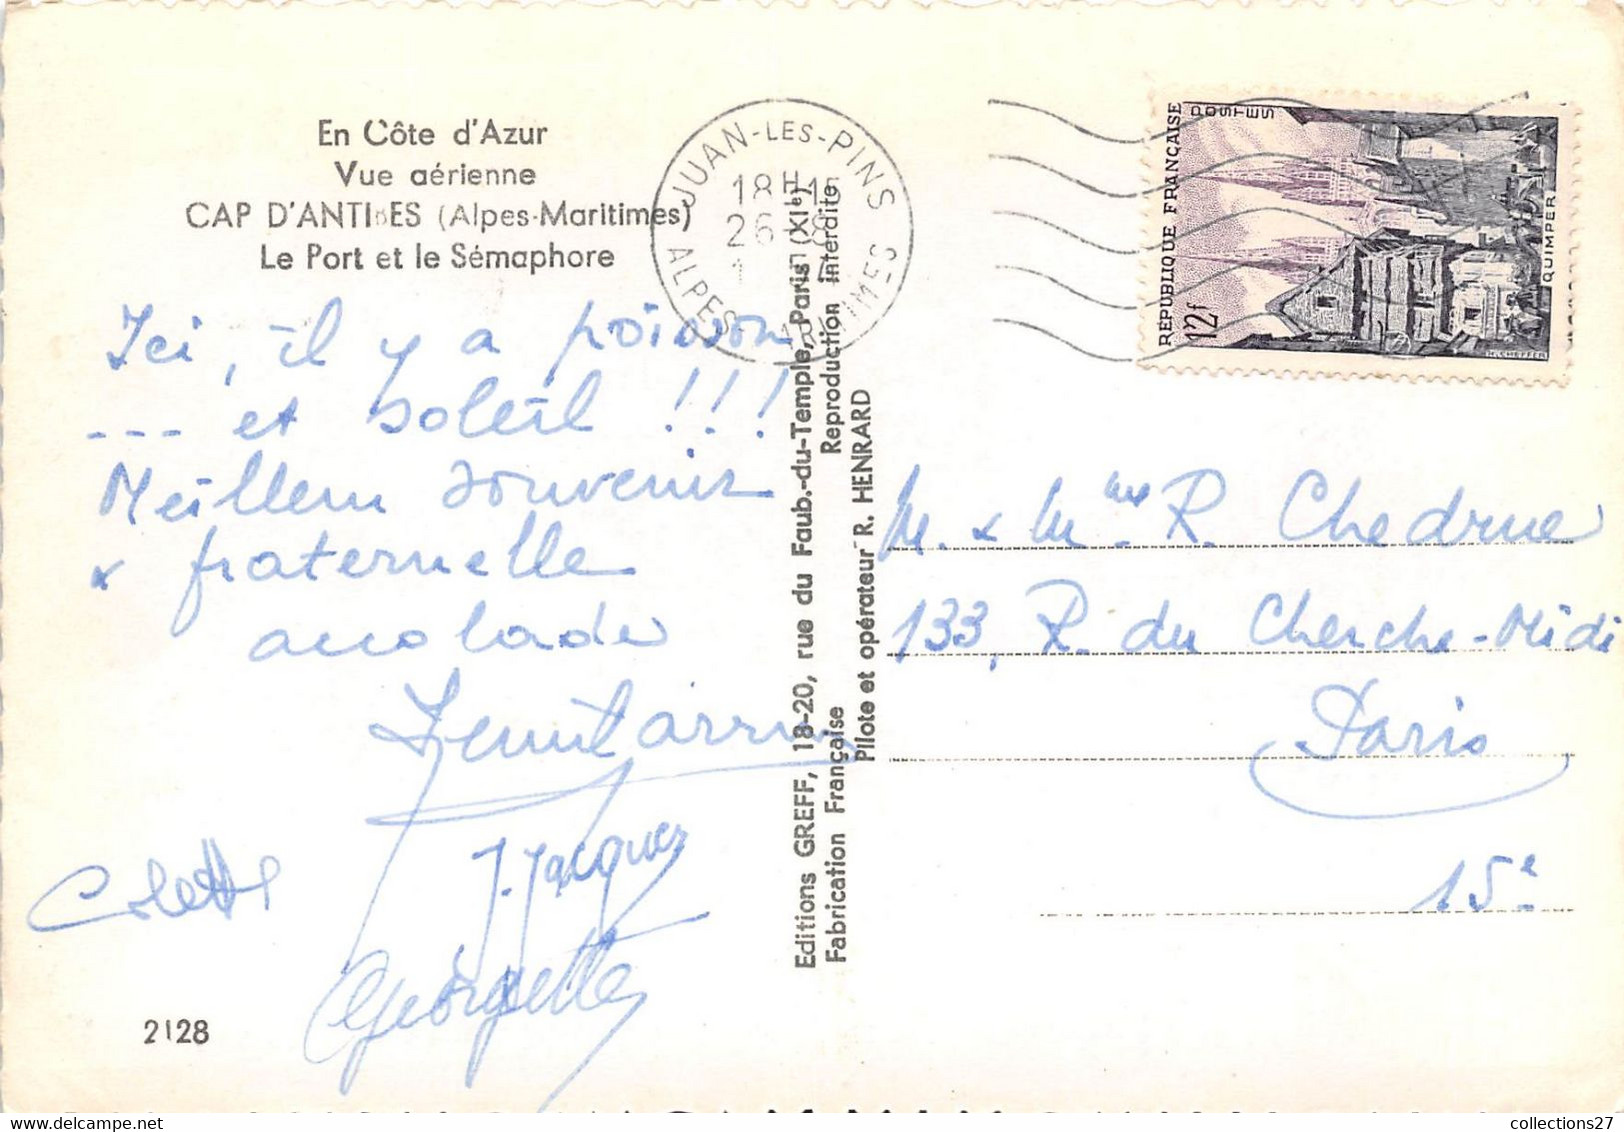 En Côte d'Azur
Vue aérienne
CAP D'ANTIBES (Alpes-Maritimes)
Le Port et le Sémaphore
JUAN-LES-PINS
18H15
26
ALPES
RÉPUBLIQUE FRANÇAISE
POSTES
12f
QUIMPER
Ici, il y a poisson
--- et soleil !!!
Meilleur souvenir
& fraternelle
accolade
J. Jacques
Colette
Georgette
2128
Editions GREFF, 18-20, rue du Faub.-du-Temple, Paris (XIe)
Fabrication Française Reproduction Interdite
Pilote et opérateur R. HENRARD
M. & Mme R. Chedrue
133, R. du Cherche-Midi
Paris
15e
collections27